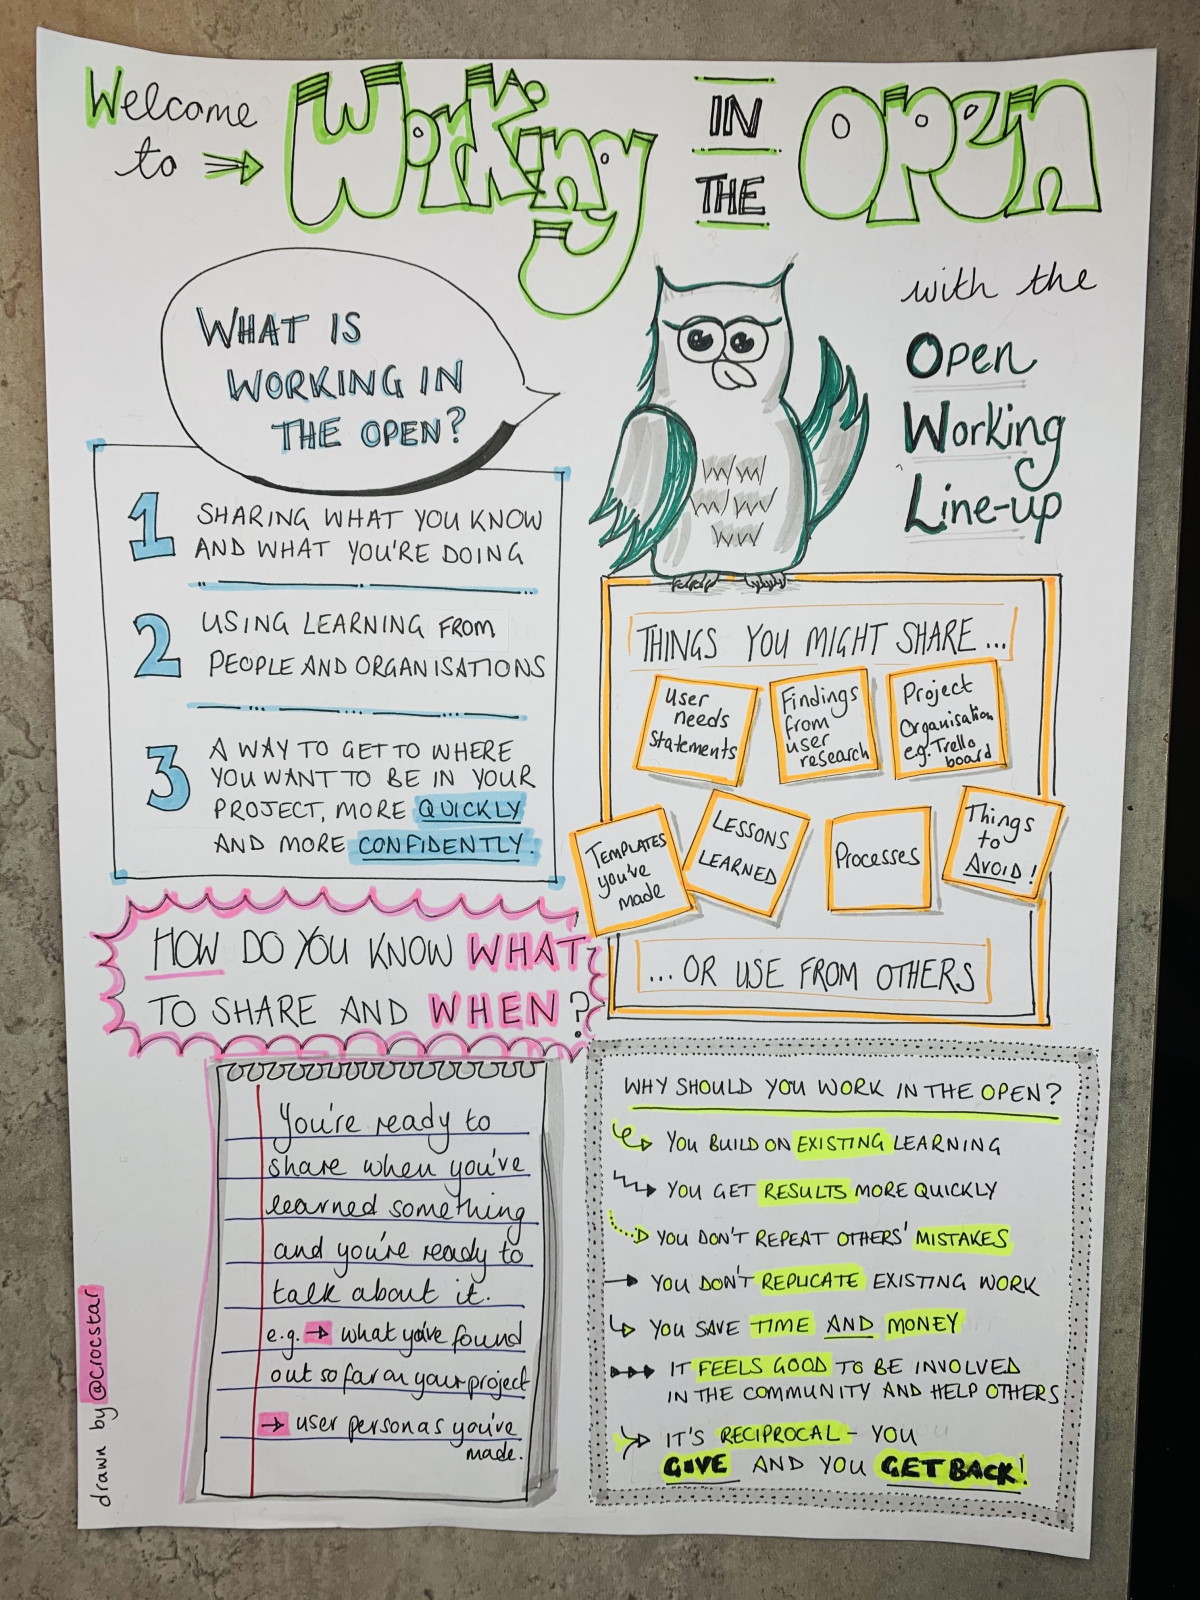 Welcome
to
Working
IN
THE
Open
with the
Open
Working
Line-up
WHAT IS
WORKING IN
THE OPEN?
1
SHARING WHAT YOU KNOW
AND WHAT YOU'RE DOING
2
USING LEARNING FROM
PEOPLE AND ORGANISATIONS
3
A WAY TO GET TO WHERE
YOU WANT TO BE IN YOUR
PROJECT, MORE QUICKLY
AND MORE CONFIDENTLY.
THINGS YOU MIGHT SHARE...
User
needs
Statements
Findings
from
user
research
Project
Organisation
e.g. Trello
board
TEMPLATES
you've
made
LESSONS
LEARNED
Processes
Things
to
AVOID!
...OR USE FROM OTHERS
HOW DO YOU KNOW WHAT
TO SHARE AND WHEN?
You're ready to
share when you've
learned something
and you're ready to
talk about it.
e.g. → what you've found
out so far on your project
→ user personas you've
made.
WHY SHOULD YOU WORK IN THE OPEN?
YOU BUILD ON EXISTING LEARNING
YOU GET RESULTS MORE QUICKLY
YOU DON'T REPEAT OTHERS' MISTAKES
YOU DON'T REPLICATE EXISTING WORK
YOU SAVE TIME AND MONEY
IT FEELS GOOD TO BE INVOLVED
IN THE COMMUNITY AND HELP OTHERS
IT'S RECIPROCAL - YOU
GIVE AND YOU GET BACK!
drawn by @crocstar